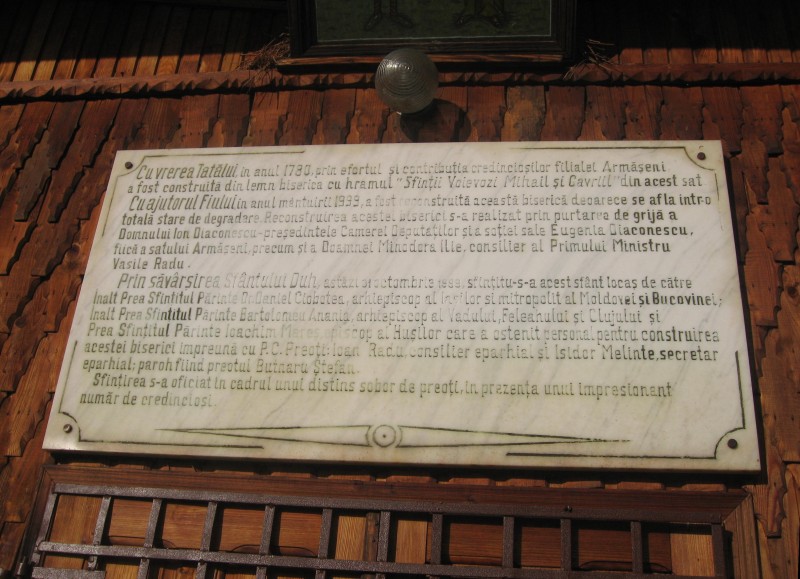 Cu vrerea Tatălui în anul 1780, prin efortul și contribuția credincioșilor filialei Armășeni
a fost construită din lemn biserica cu hramul "Sfinții Voievozi Mihail și Gavriil" din acest sat
Cu ajutorul Fiului în anul mântuirii 1999, a fost reconstruită această biserică deoarece se afla într-o
totală stare de degradare. Reconstruirea acestei biserici s-a realizat prin purtarea de grijă a
Domnului Ion Diaconescu-președintele Camerei Deputaților și a soției sale Eugenia Diaconescu,
fiică a satului Armășeni, precum și a Doamnei Minodora Ilie, consilier al Primului Ministru
Vasile Radu.
Prin săvârșirea Sfântului Duh, astăzi octombrie sfințitu-s-a acest sfânt locaș de către
Inalt Prea Sfințitul Părinte Dr. Daniel Ciobotea, arhiepiscop al Iașilor și mitropolit al Moldovei și Bucovinei;
Inalt Prea Sfințitul Părinte Bartolomeu Anania, arhiepiscop al Vadului, Feleanului și Clujului și
Prea Sfințitul Părinte Ioachim Mareș episcop al Hușilor care a ostenit personal pentru construirea
acestei biserici împreună cu P.C. Preoți: Ioan Radu, consilier eparhial și Isidor Melinte, secretar
eparhial; paroh fiind preotul Butnaru Ștefan.
Sfințirea s-a oficiat în cadrul unui distins sobor de preoți, în prezența unui impresionant
număr de credincioși.